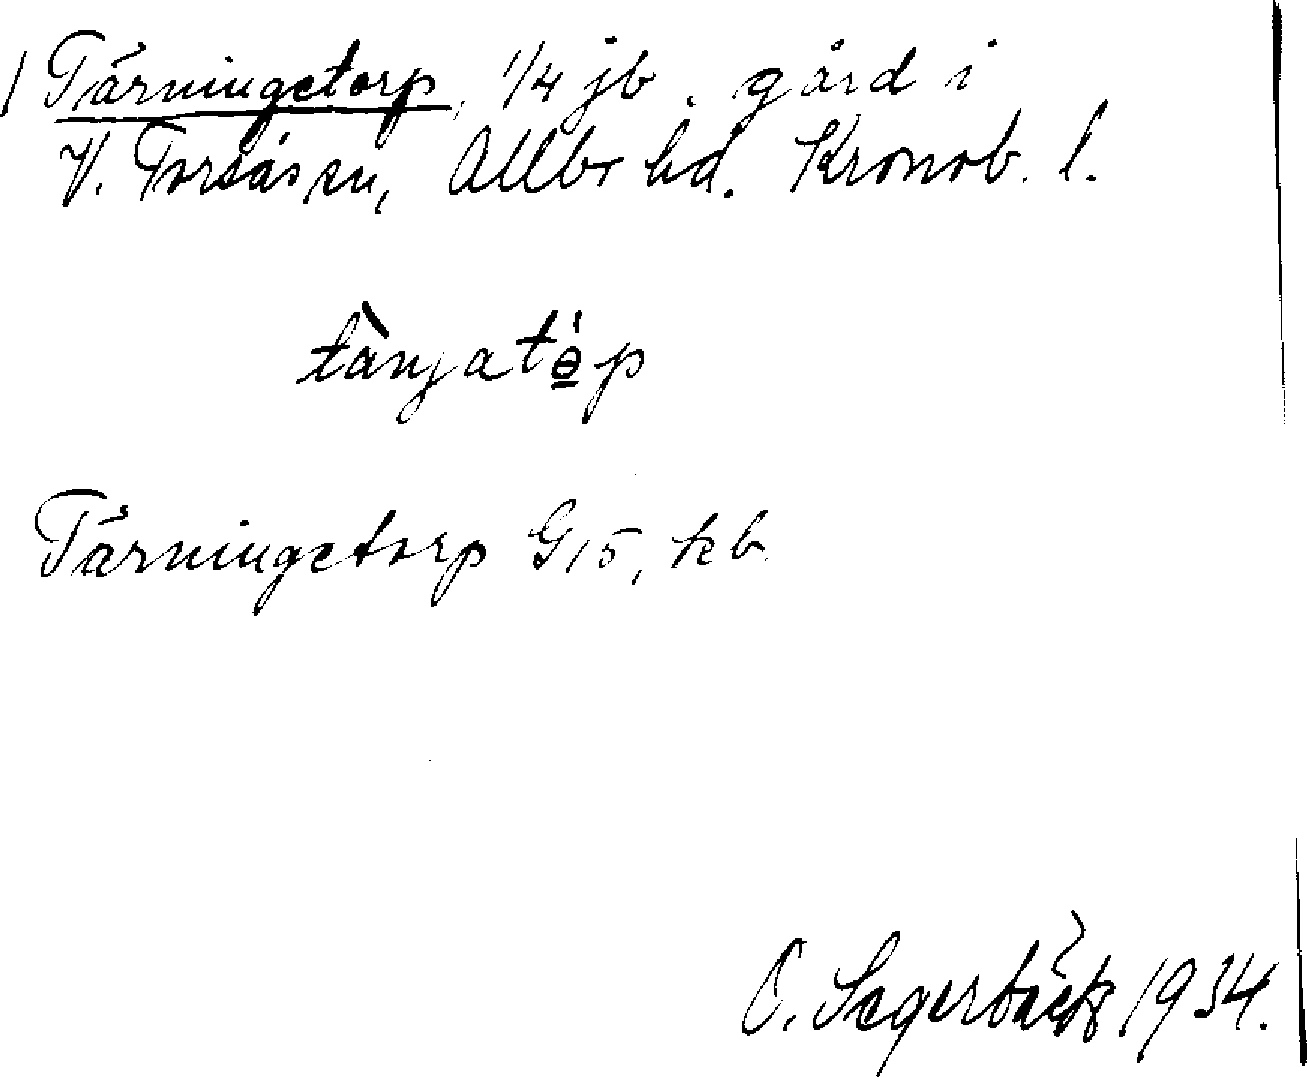 Tärningetorp, 1/4 jb. gård i
V. Torsås sn, Allbo hd. Kronob. l.
Tärningetorp G 15, kb.
O. Segerbäck 1934.